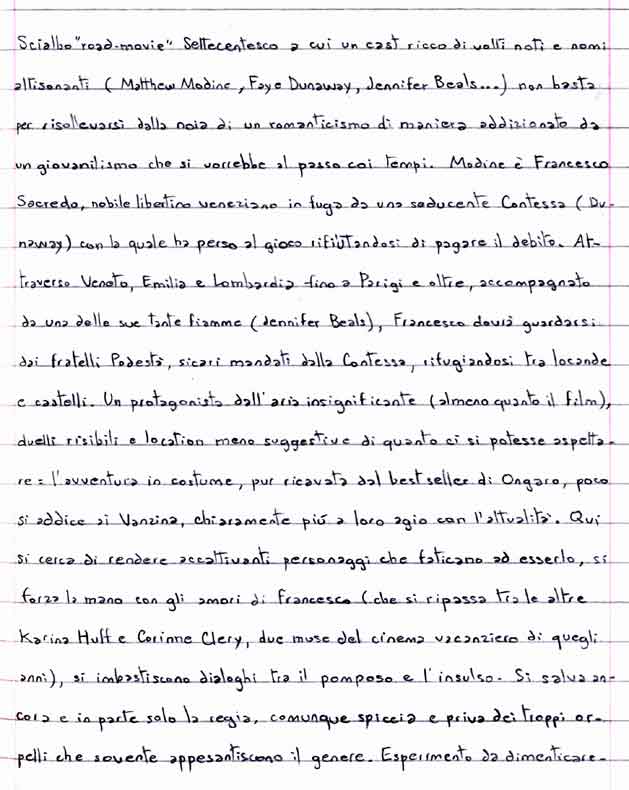 Scialbo "road-movie" Settecentesco a cui un cast ricco di volti noti e nomi
altisonanti (Matthew Modine, Faye Dunaway, Jennifer Beals...) non basta
per risollevarsi dalla noia di un romanticismo di maniera addizionato da
un giovanilismo che si vorrebbe al passo coi tempi. Modine è Francesco
Sacredo, nobile libertino veneziano in fuga da una seducente Contessa (Du-
naway) con la quale ha perso al gioco rifiutandosi di pagare il debito. At-
traverso Veneto, Emilia e Lombardia fino a Parigi e oltre, accompagnato
da una delle sue tante fiamme (Jennifer Beals), Francesco dovrà guardarsi
dai fratelli Podestà, sicari mandati dalla Contessa, rifugiandosi tra locande
e castelli. Un protagonista dall'aria insignificante (almeno quanto il film),
duelli risibili e location meno suggestive di quanto ci si potesse aspetta-
re: l'avventura in costume, pur ricavata dal bestseller di Ongaro, poco
si addice ai Vanzina, chiaramente più a loro agio con l'attualità. Qui
si cerca di rendere accattivanti personaggi che faticano ad esserlo, si
forza la mano con gli amori di Francesco (che si ripassa tra le altre
Karina Huff e Corinne Clery, due muse del cinema vacanziero di quegli
anni), si imbastiscono dialoghi tra il pomposo e l'insulso. Si salva an-
cora e in parte solo la regia, comunque spiccia e priva dei troppi or-
pelli che sovente appesantiscono il genere. Esperimento da dimenticare.